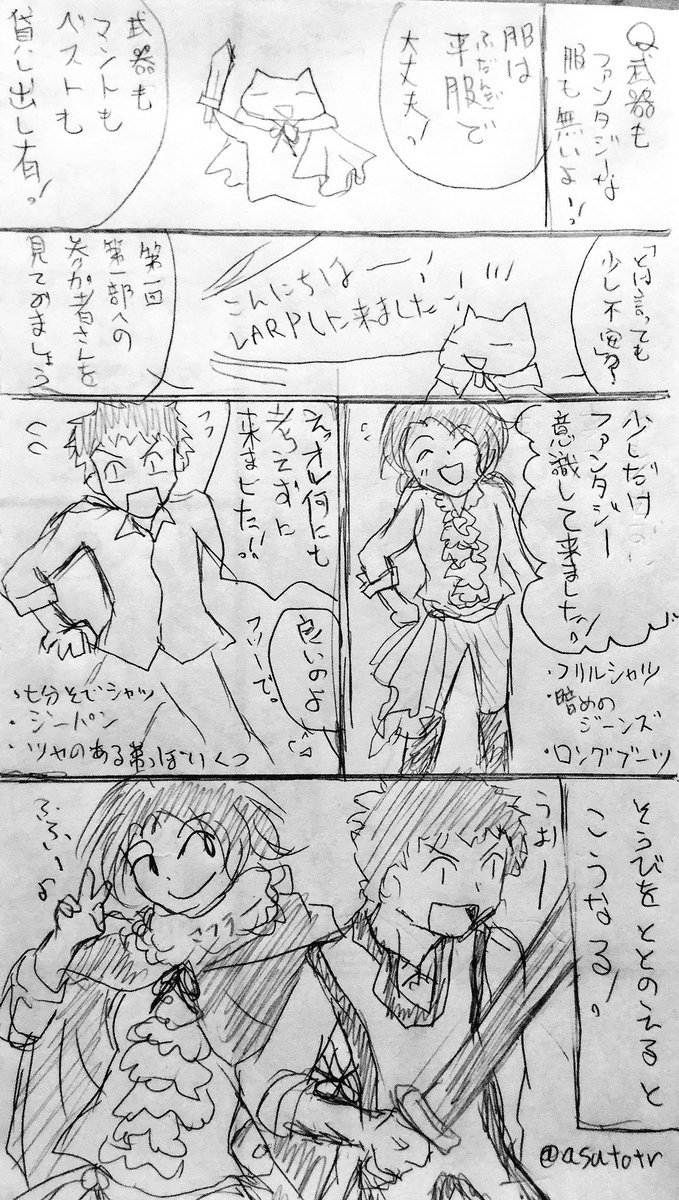 Q武器も
ファンタジーな
服も無いよーっ!
服は
ふだんぎ
平服で
大丈夫っ!
武器も
マントも
ベストも
貸し出し有っ!
「とは言っても
少し不安」?
こんにちはーー!
LARPしに来ましたー!
第一回
第一部への
参加者さんを
見てみましょう
少しだけ
ファンタジー
意識して来ましたっ!
・フリルシャツ
・暗めの
ジーンズ
・ロングブーツ
えっオレ何にも
考えずに
来ましたっ!!
良いのよ
フリーで。
・七分そでシャツ
・ジーパン
・ツヤのある革っぽいくつ
そうびをととのえると
こうなる!。
うおーー
ふふーよ
@asutotr